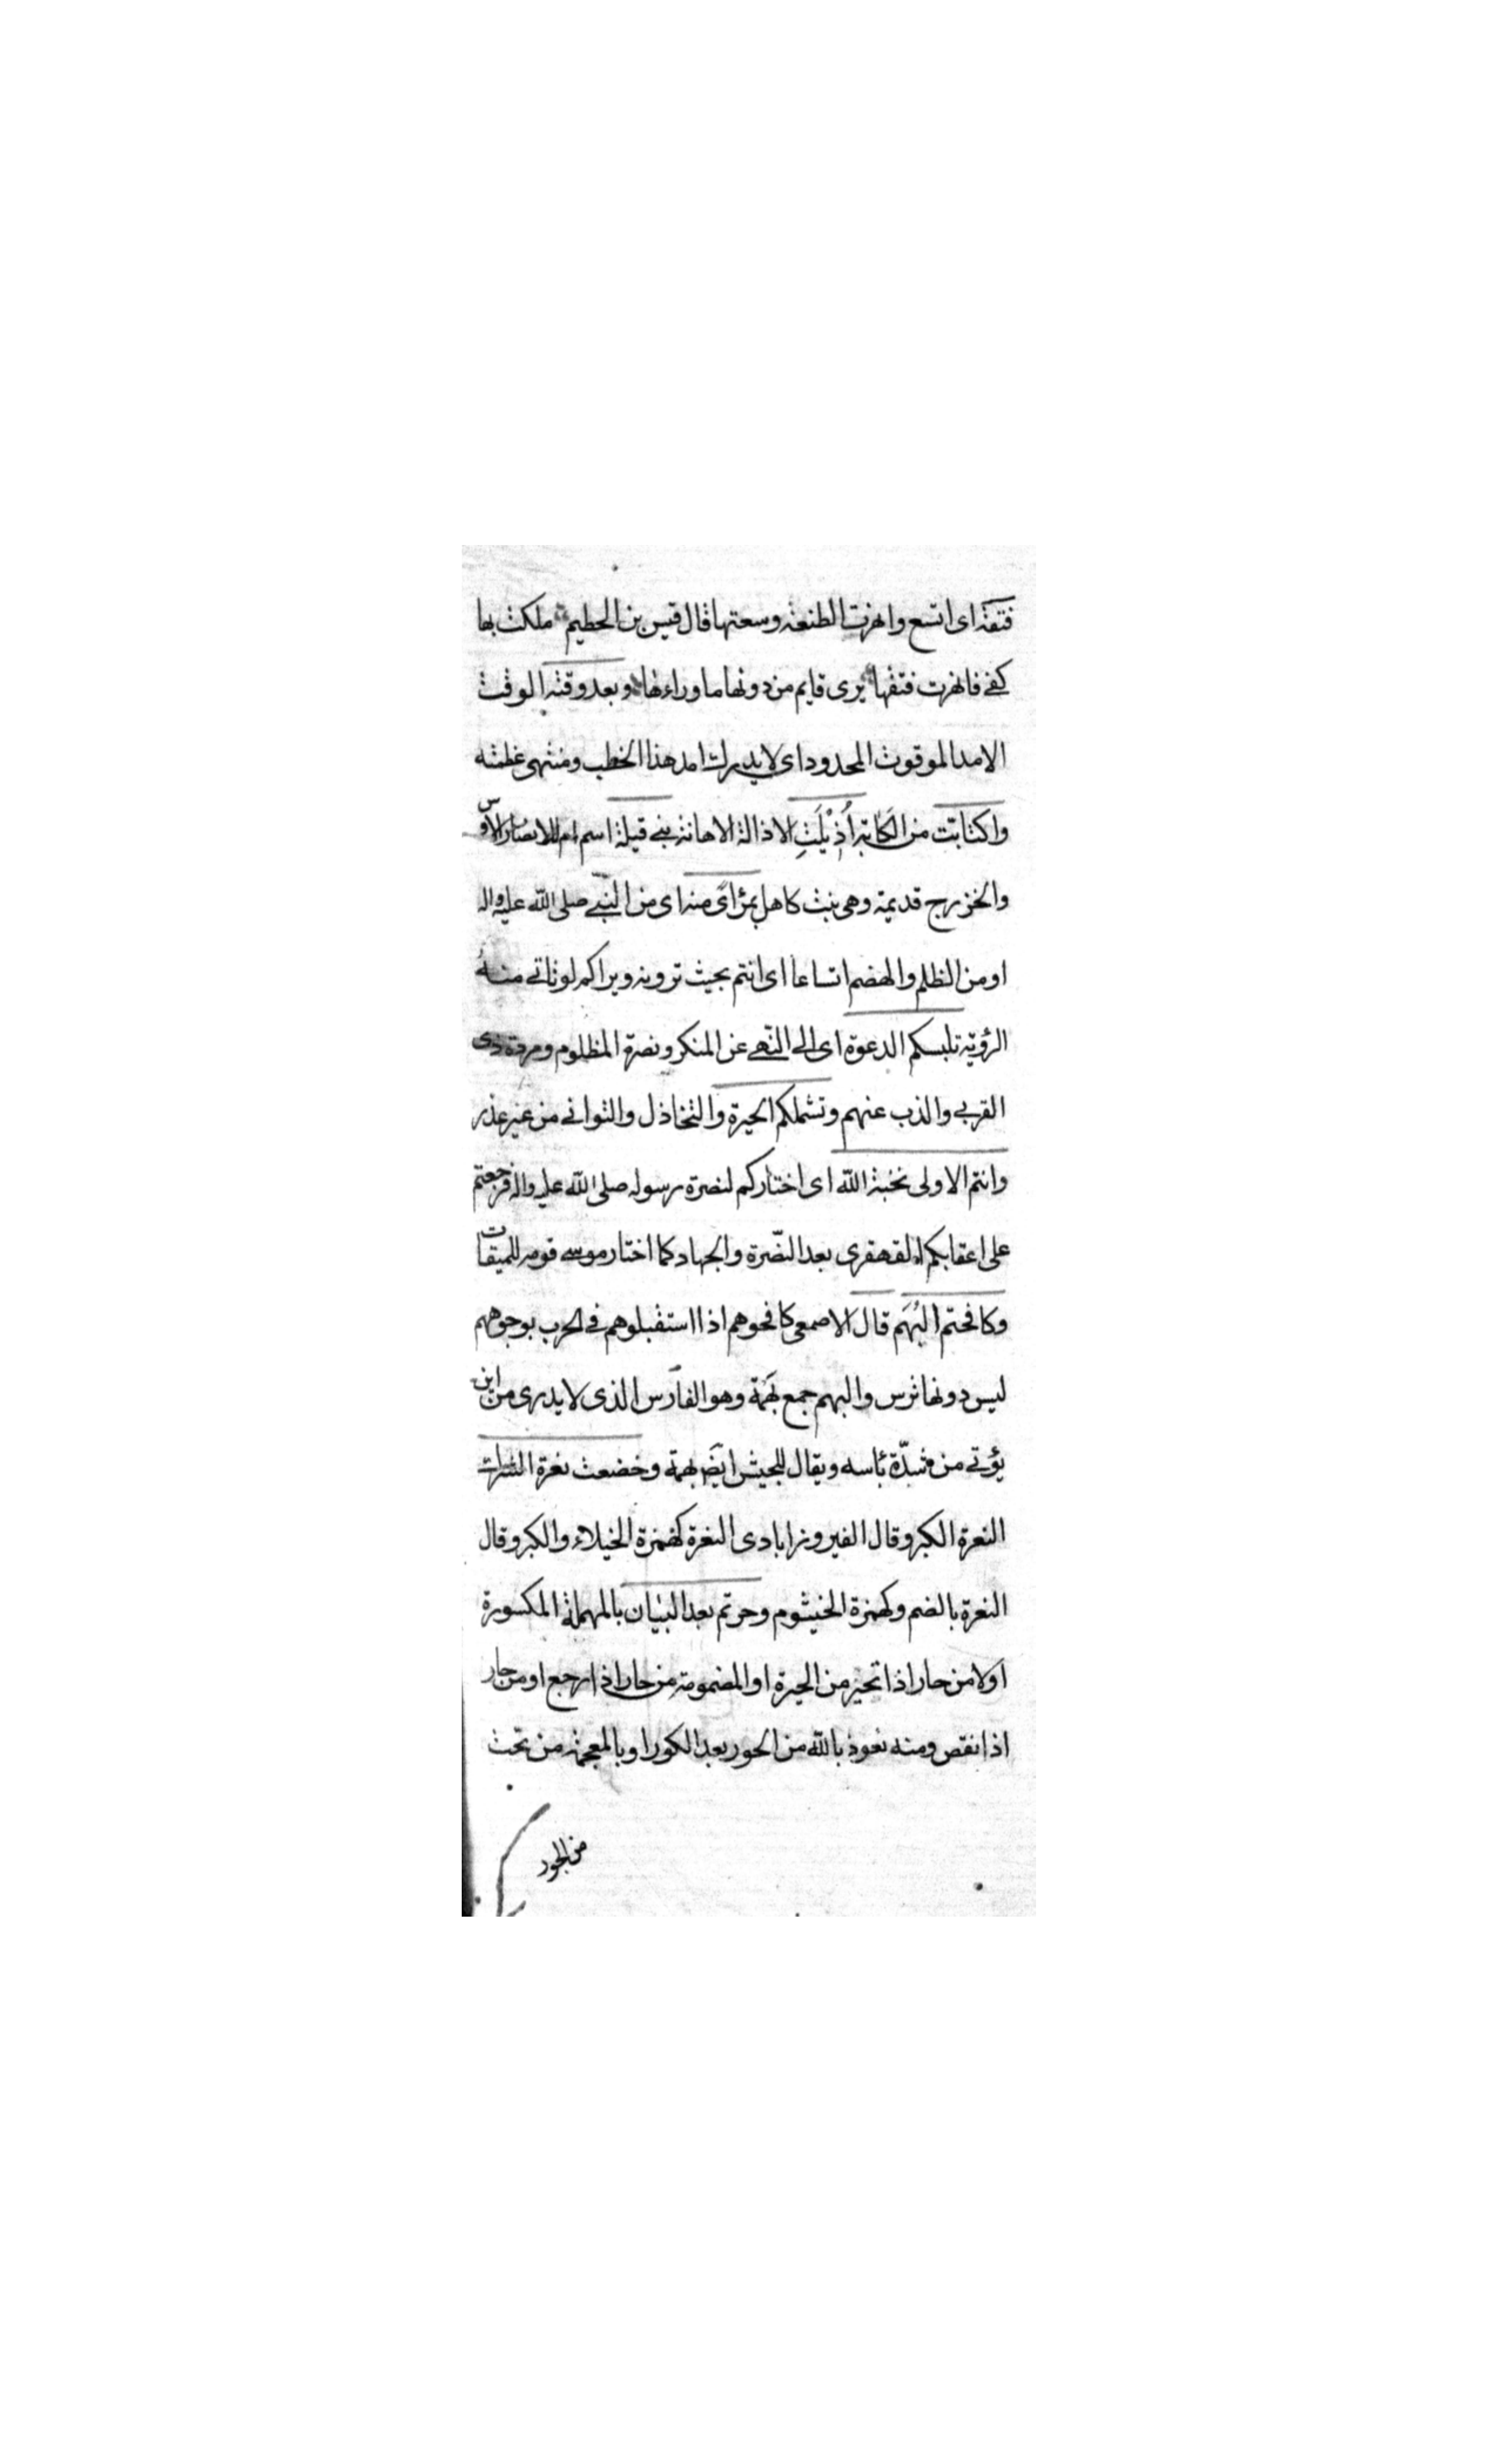 فتقه اى اتسع وانهرت الطنعة وسعتها قال قيس بن الحطيم ملكت بها
كفے فانهرت فتقها يرى قايم من دونها ما وراءها وبعد وقته الوقت
الامد الموقوت المحدود اى لا يدرك امد هذا الخطب ومنتهى غلمته
واكتابت من الكابة أُذِيْلَتِ الاذالة الاهانة بنے قيلة اسم ام للانصار الاوس
والخزرج قديمة وهى بنت كاهل بمرأى منه اى من النبے صلى الله عليه واله
او من الظلم والهضم اتساعا اى انتم بحيث ترونه ويراكم لو تاتے منه
الرؤية تلبسكم الدعوة اى الے النهے عن المنكر ونصرة المظلوم ومردة ذى
القربے والذب عنهم وتشملكم الحيرة والتخاذل والتوانے من غير عذر
وانتم الاولى نخبة الله اى اختاركم لنصرة رسوله صلى الله عليه واله فرجعتم
على اعقابكم القهقرى بعد النصّرة والجهاد كما اختار موسے قومه للميقات
وكافحتم البُهَم قال الاصمعى كافحوهم اذا استقبلوهم فے الحرب بوجوههم
ليس دونها ترس والبهم جمع بُهمَة وهو الفارس الذى لا يدرى من اين
يؤتے من شدّة بأسه ويقال للجيش ايضَ بهمة وخضعت نعرة الشرك
النعرة الكبر وقال الفيروزابادى النعرة كهمزة الخيلاء والكبر وقال
النعرة بالضم وكهمزة الخيشوم وحرتم بعد البيان بالمهملة المكسورة
اولا من حار اذا تحير من الحيرة او المضمومة من حار اذا رجع او من حار
اذا نقص ومنه نعوذ بالله من الحور بعد الكور او بالمعجمة من تحت
من الجور